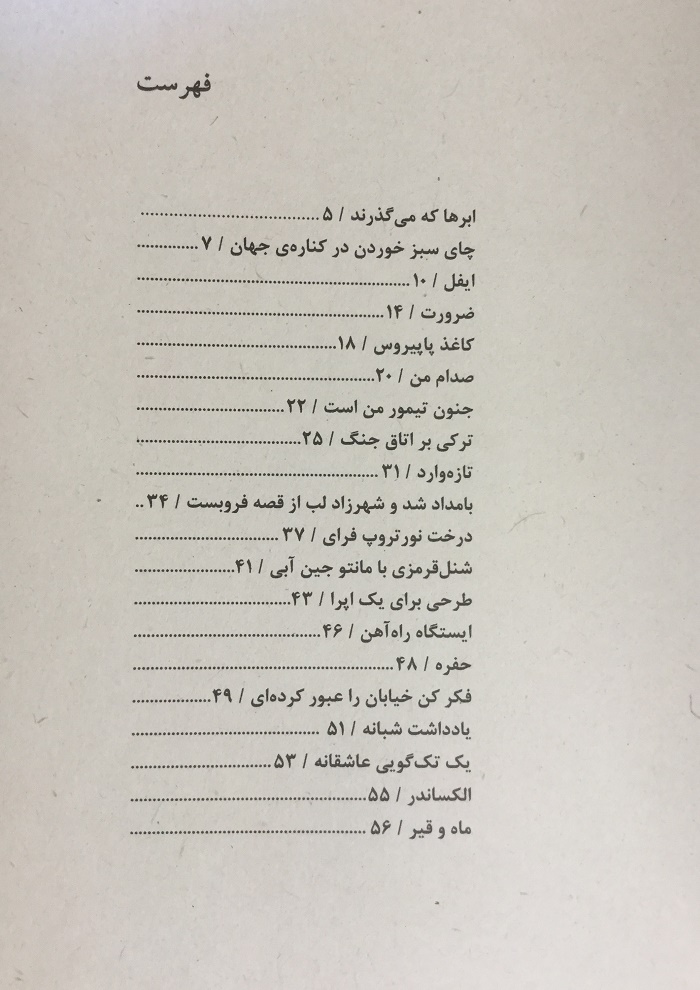 فهرست
ابرها که می‌گذرند / ۵ ......................................
چای سبز خوردن در کناره‌ی جهان / ۷ .............
ایفل / ۱۰ ..........................................................
ضرورت / ۱۴ ....................................................
کاغذ پاپیروس / ۱۸ ..........................................
صدام من / ۲۰ ..................................................
جنون تیمور من است / ۲۲ ...............................
ترکی بر اتاق جنگ / ۲۵ ...................................
تازه‌وارد / ۳۱ ...................................................
بامداد شد و شهرزاد لب از قصه فروبست / ۳۴ ..
درخت نورتروپ فرای / ۳۷ ..............................
شنل‌قرمزی با مانتو جین آبی / ۴۱ .....................
طرحی برای یک اپرا / ۴۳ .................................
ایستگاه راه‌آهن / ۴۶ ........................................
حفره / ۴۸ .......................................................
فکر کن خیابان را عبور کرده‌ای / ۴۹ .................
یادداشت شبانه / ۵۱ ........................................
یک تک‌گویی عاشقانه / ۵۳ ..............................
الکساندر / ۵۵ ..................................................
ماه و قیر / ۵۶ ..................................................